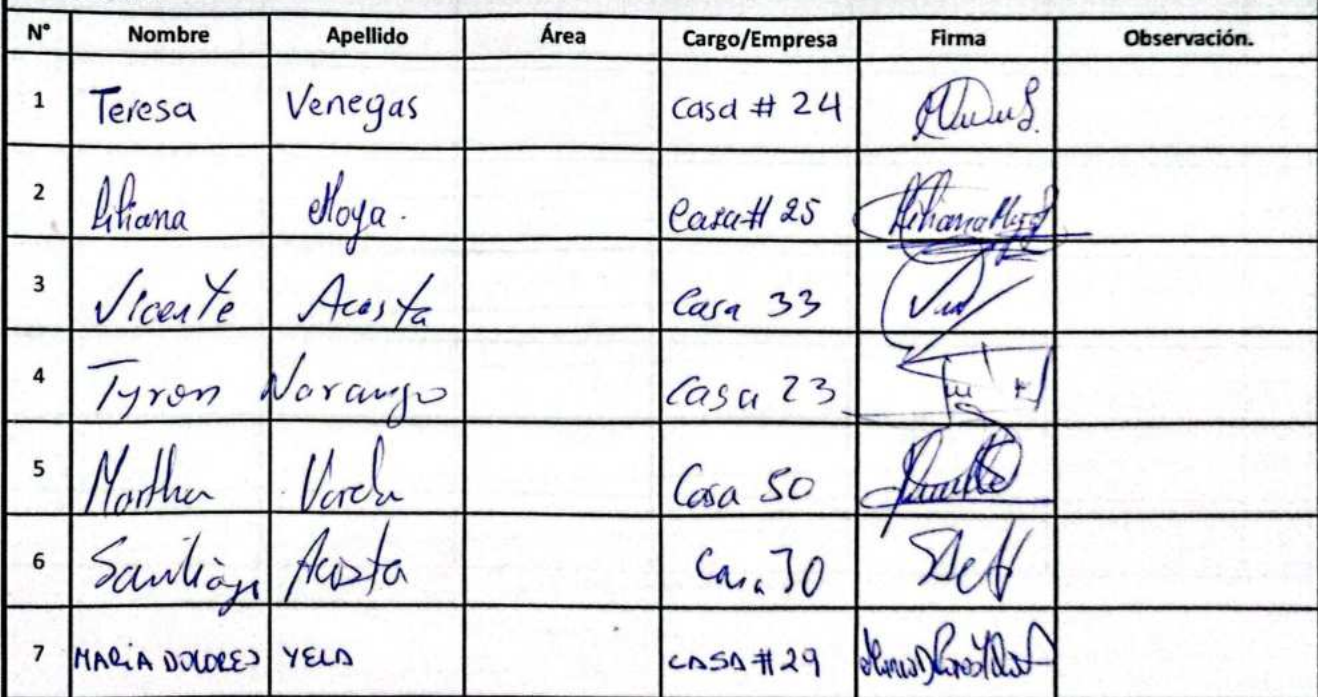 N° Nombre Apellido Área Cargo/Empresa Firma Observación.
1 Teresa Venegas casa # 24
2 Liliana Moya. Casa # 25 Liliana Moya
3 Vicente Acosta Casa 33
4 Tyron Naranjo Casa 23
5 Martha Varela Casa 50
6 Santiago Acosta Casa 30
7 MARÍA DOLORES YELA CASA # 29